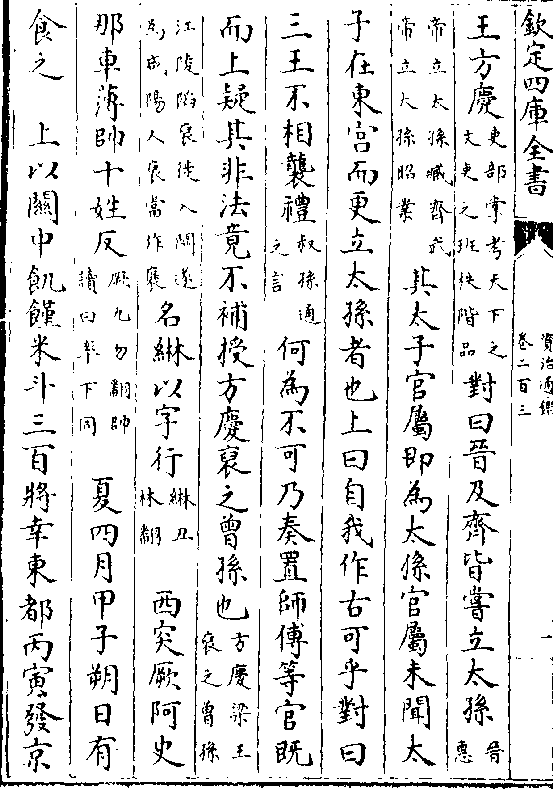 欽定四庫全書 資治通鑑 卷二百三 一
王方慶吏部掌考天下之文吏之班秩階品對曰晉及齊皆嘗立太孫晉惠
帝立太孫臧齊武帝立太孫昭業其太子官屬即為太孫官屬未聞太
子在東宫而更立太孫者也上曰自我作古可乎對曰
三王不相襲禮叔孫通之言何為不可乃奏置師傅等官既
而上疑其非法竟不補授方慶裒之曾孫也方慶梁王裒之曾孫
江陵陷裒徙入關遂為咸陽人裒當作褒名綝以字行綝丑林翻 西突厥阿史
那車薄帥十姓反厥九勿翻帥讀曰率下同 夏四月甲子朔日有
食之 上以關中飢饉米斗三百將幸東都丙寅發京